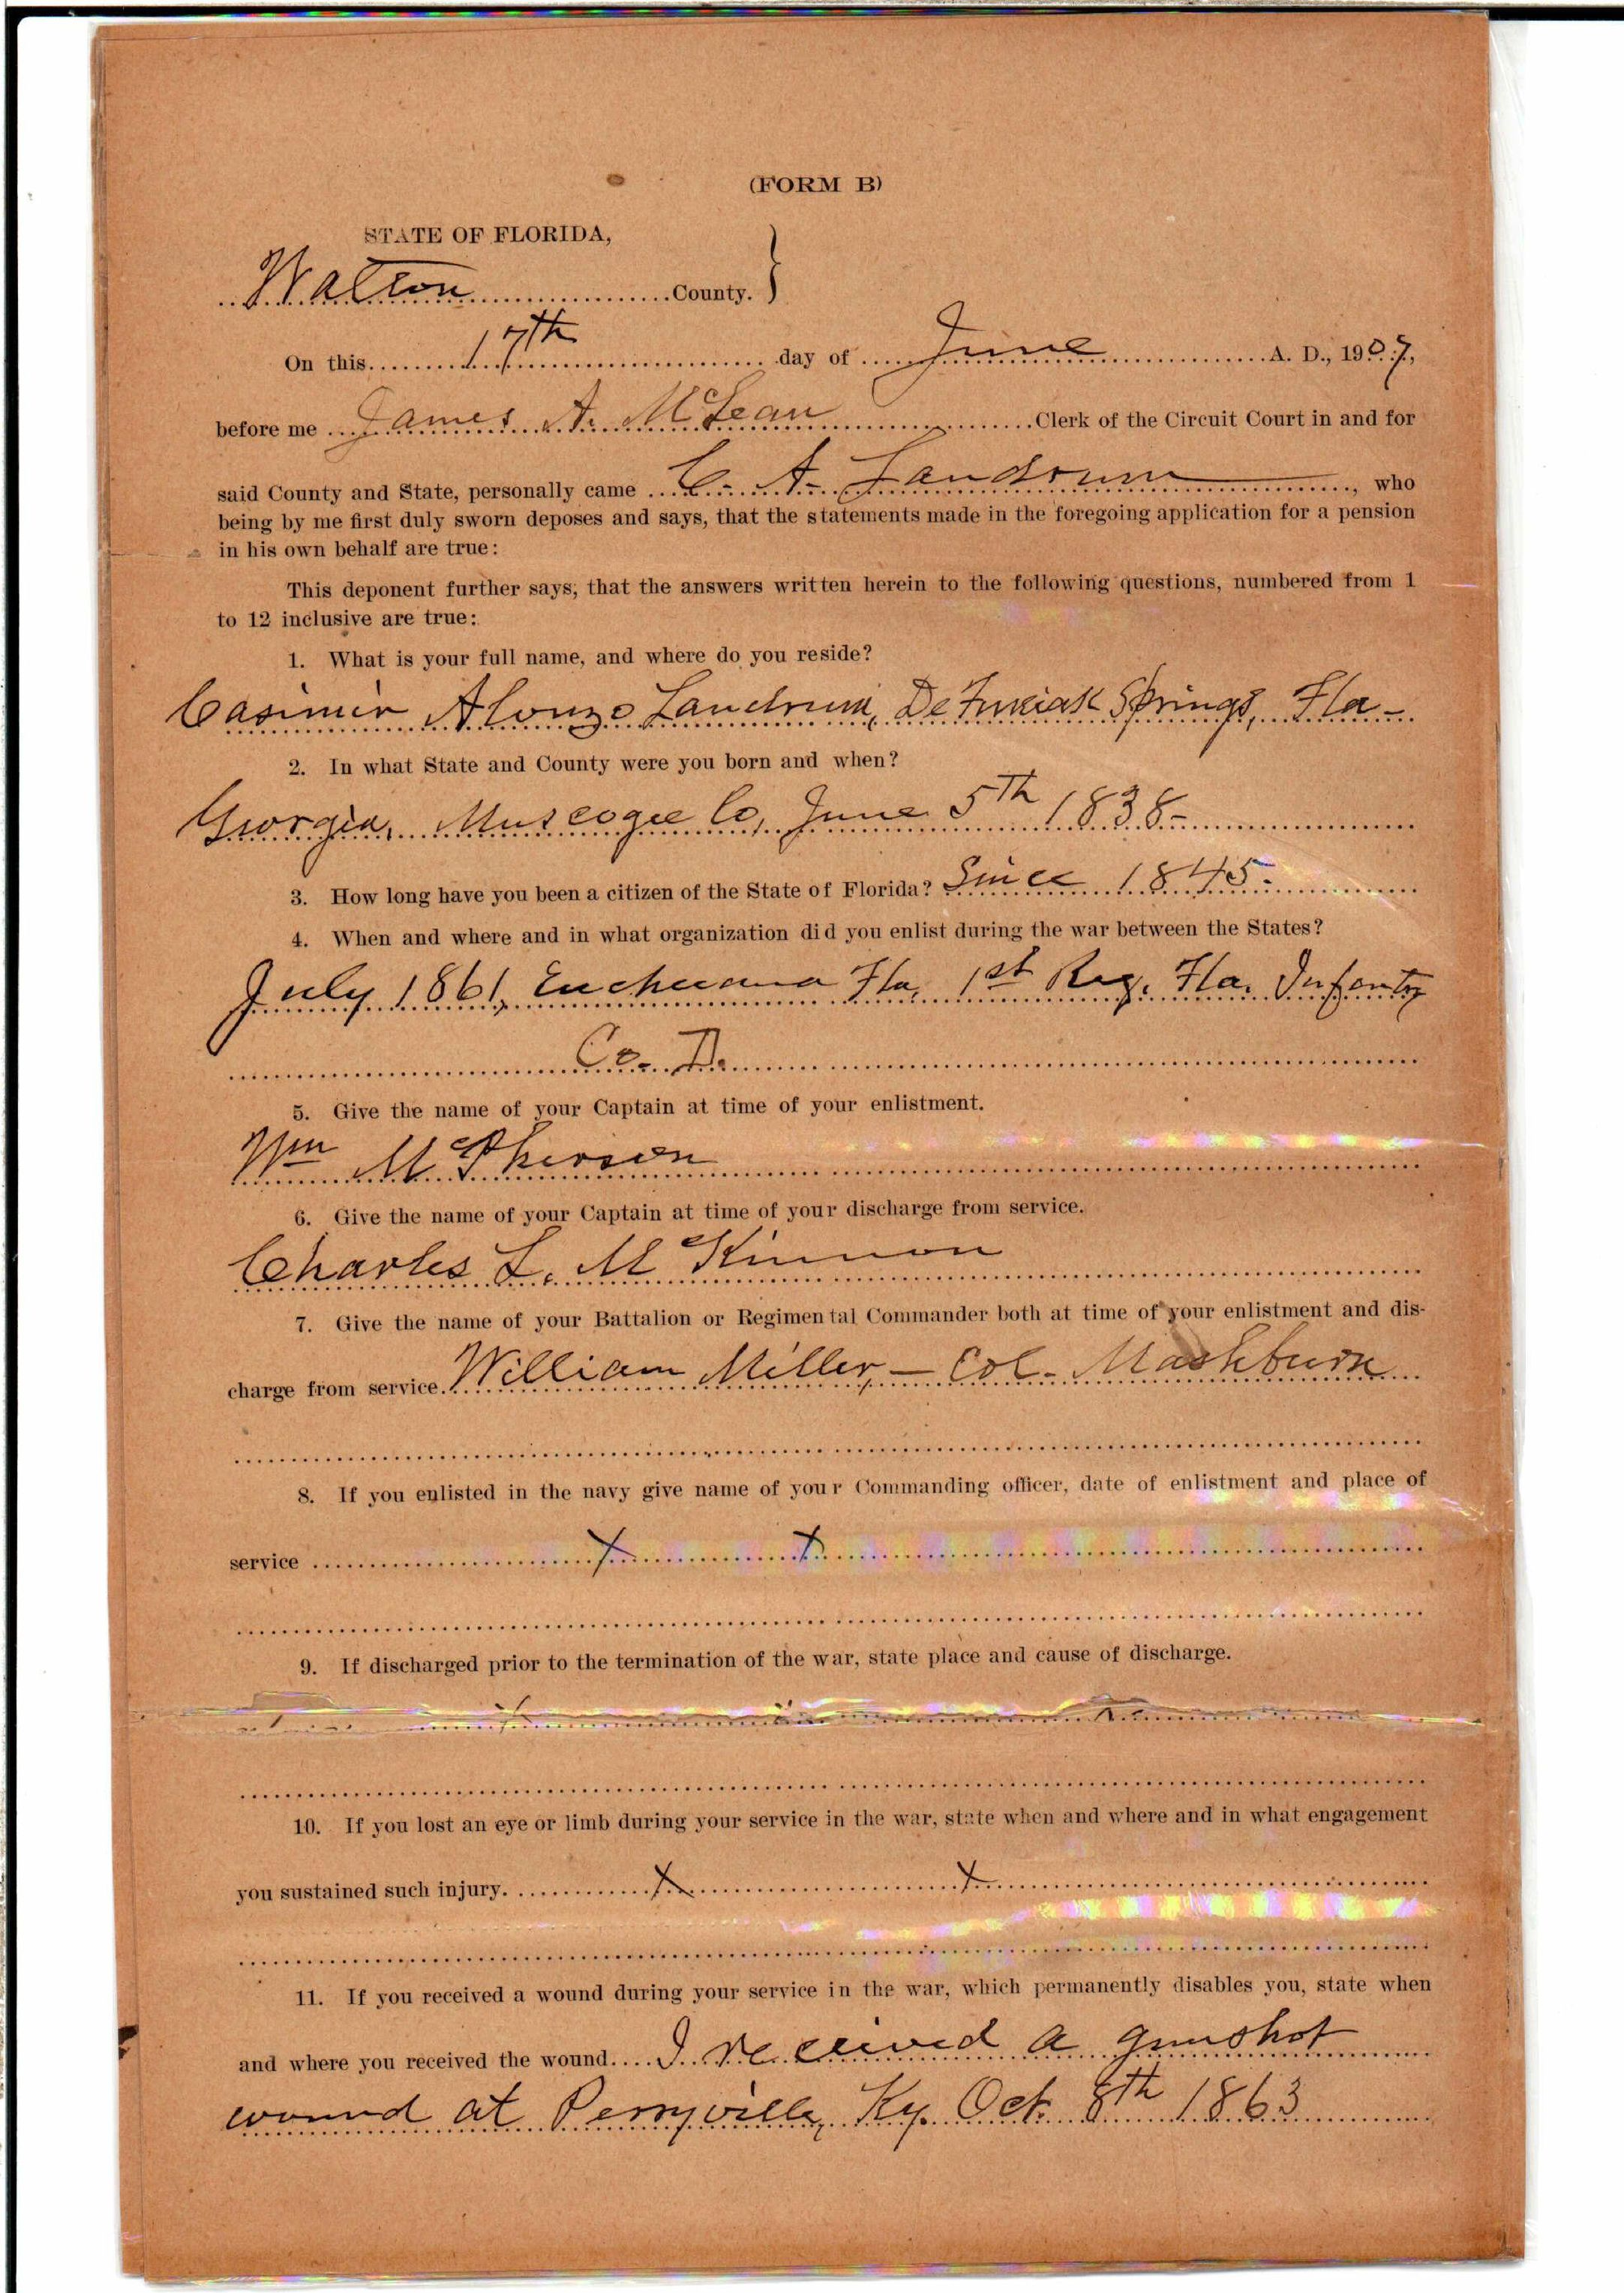 (FORM B)
STATE OF FLORIDA,
Walton County.
On this 17th day of June A. D., 1907,
before me James A. McLean Clerk of the Circuit Court in and for
said County and State, personally came C. A. Landrum, who
being by me first duly sworn deposes and says, that the statements made in the foregoing application for a pension
in his own behalf are true:
This deponent further says, that the answers written herein to the following questions, numbered from 1
to 12 inclusive are true:
1. What is your full name, and where do you reside?
Casimir Alonzo Landrum, DeFuniak Springs, Fla-
2. In what State and County were you born and when?
Georgia, Muscogee Co, June 5th 1838-
3. How long have you been a citizen of the State of Florida? Since 1845-
4. When and where and in what organization did you enlist during the war between the States?
July 1861, Eucheeana Fla, 1st Reg. Fla. Infantry
Co. D.
5. Give the name of your Captain at time of your enlistment.
Wm McPherson
6. Give the name of your Captain at time of your discharge from service.
Charles L. McKinnon
7. Give the name of your Battalion or Regimental Commander both at time of your enlistment and dis-
charge from service. William Miller, - Col. Mashburn
8. If you enlisted in the navy give name of your Commanding officer, date of enlistment and place of
service x x
9. If discharged prior to the termination of the war, state place and cause of discharge.
10. If you lost an eye or limb during your service in the war, state when and where and in what engagement
you sustained such injury. x x
11. If you received a wound during your service in the war, which permanently disables you, state when
and where you received the wound. I received a gunshot
wound at Perryville, Ky. Oct. 8th 1863